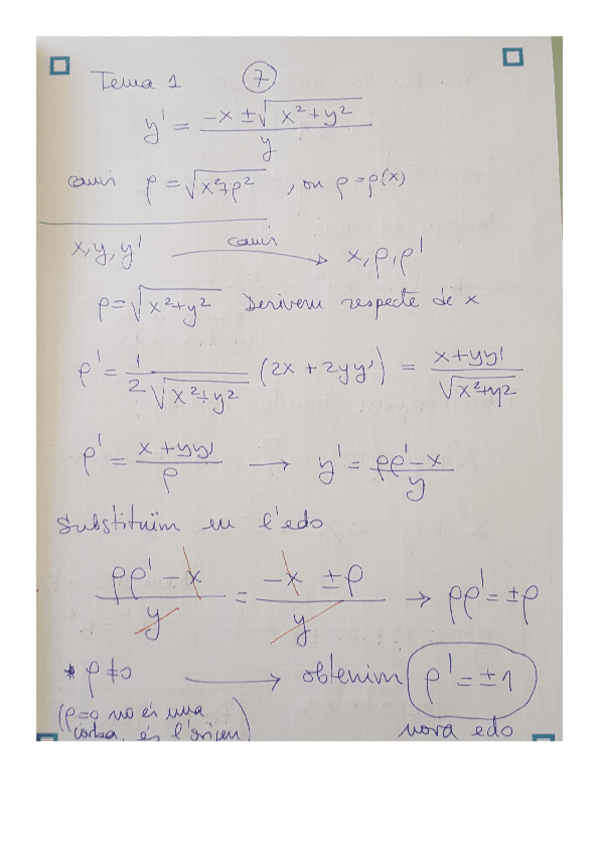 Tema 1 ⑦
y' = (-x ± √(x²+y²)) / y
canvi ρ = √(x²+ρ²) , on ρ = ρ(x)
x, y, y' canvi → x, ρ, ρ'
ρ = √(x²+y²) Derivem respecte de x
ρ' = 1 / (2√(x²+y²)) (2x + 2yy') = (x+yy') / √(x²+y²)
ρ' = (x+yy') / ρ → y' = (ρρ'-x) / y
Substituïm en l'edo
(ρρ' - x) / y = (-x ± ρ) / y → ρρ' = ±ρ
* ρ≠0 → obtenim ρ' = ±1
(ρ=0 no és una
corba, és l'origen) nova edo